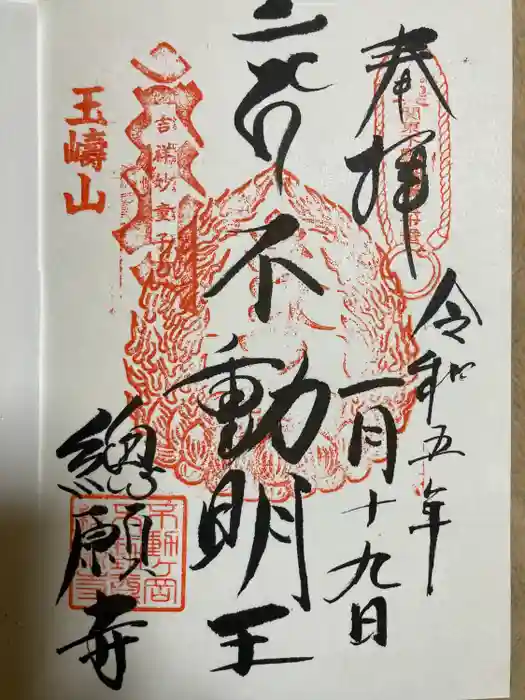 奉拝
令和五年
一月十九日
不動明王
玉嶹山
吉祥妙童子
總願寺